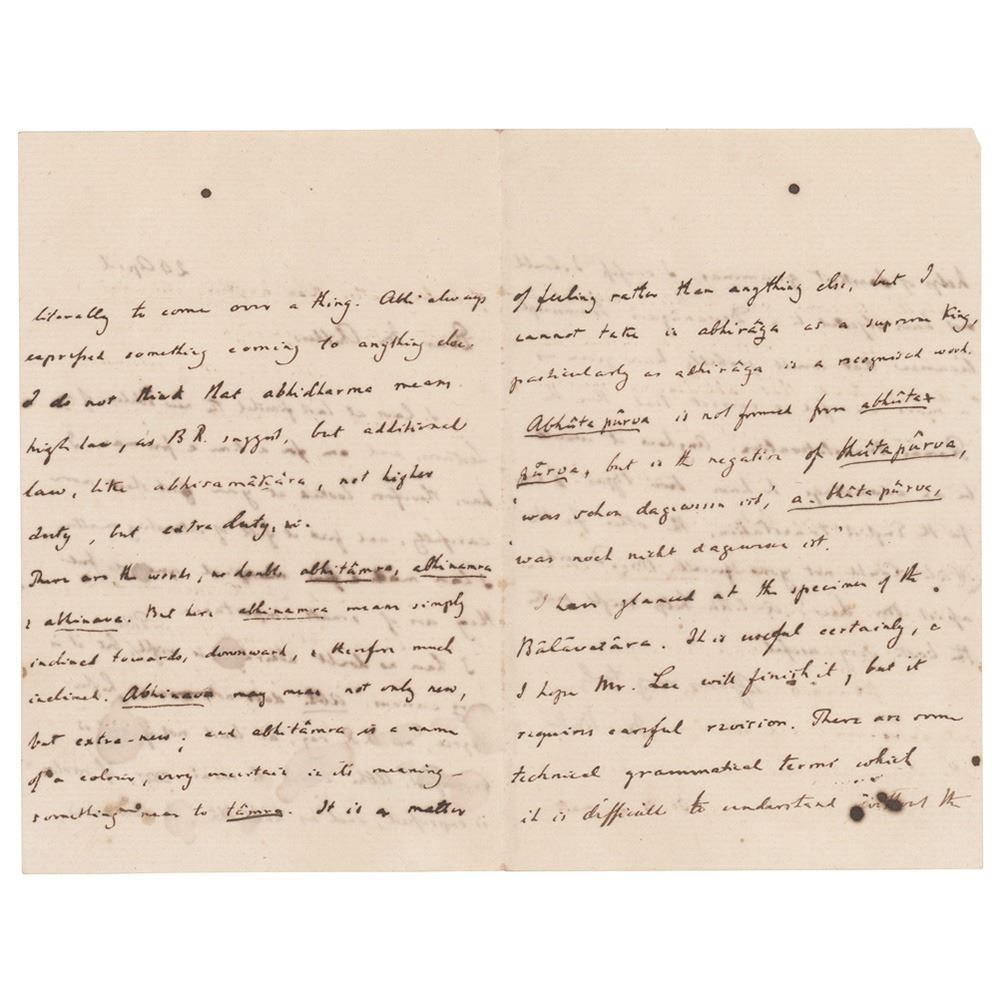 literally to come over a thing. Abhi always
expressed something coming to anything else.
I do not think that abhidharma means
high law, as B R. suggest, but additional
law, like abhisamâkâra, not higher
duty, but extra duty,
There are the words, no doubt abhitâmra, abhinamra
& abhinava. But here abhinamra means simply
inclined towards, downward, & therefore much
inclined. Abhinava may mean not only new,
but extra-new; and abhitâmra is a name
of a colour, very uncertain in its meaning –
something near to tâmra. It is a matter
of feeling rather than anything else, but I
cannot take in abhirâga as a supreme king,
particularly as adhirâga is a recognised word.
Abhûta pûrva is not formed from abhûta
pûrva, but is the negative of bhûta pûrva,
'was schon dagewesen ist,' a-bhûta pûrva,
'was noch nicht dagewesen ist.'
I have glanced at the specimen of the
Bâlâvatâra. It is useful certainly, &
I hope Mr. Lee will finish it, but it
requires careful revision. There are some
technical grammatical terms which
it is difficult to understand without the
20 April